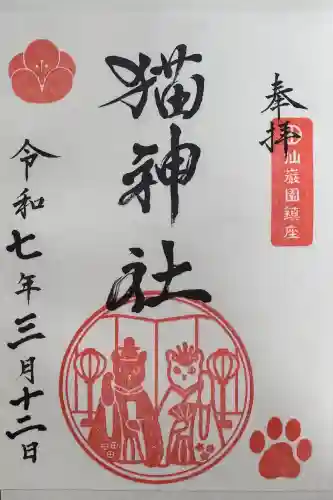 奉拝
仙巌園鎮座
猫神社
令和七年三月十二日